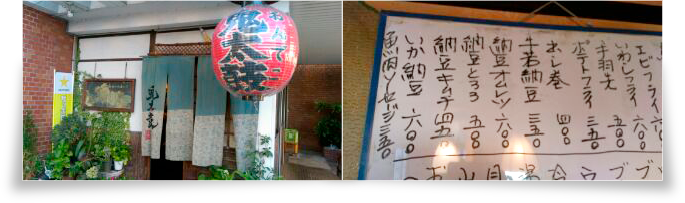 おんでこ
鬼太鼓
エビフライ 六〇〇
いわしフライ 六〇〇
手羽先 五〇〇
ポテトフライ 三五〇
だし巻 四〇〇
納豆 三五〇
納豆オムレツ 六〇〇
納豆とろろ 五〇〇
納豆キムチ 四五〇
いか納豆 六〇〇
魚肉ソーセージ 三五〇